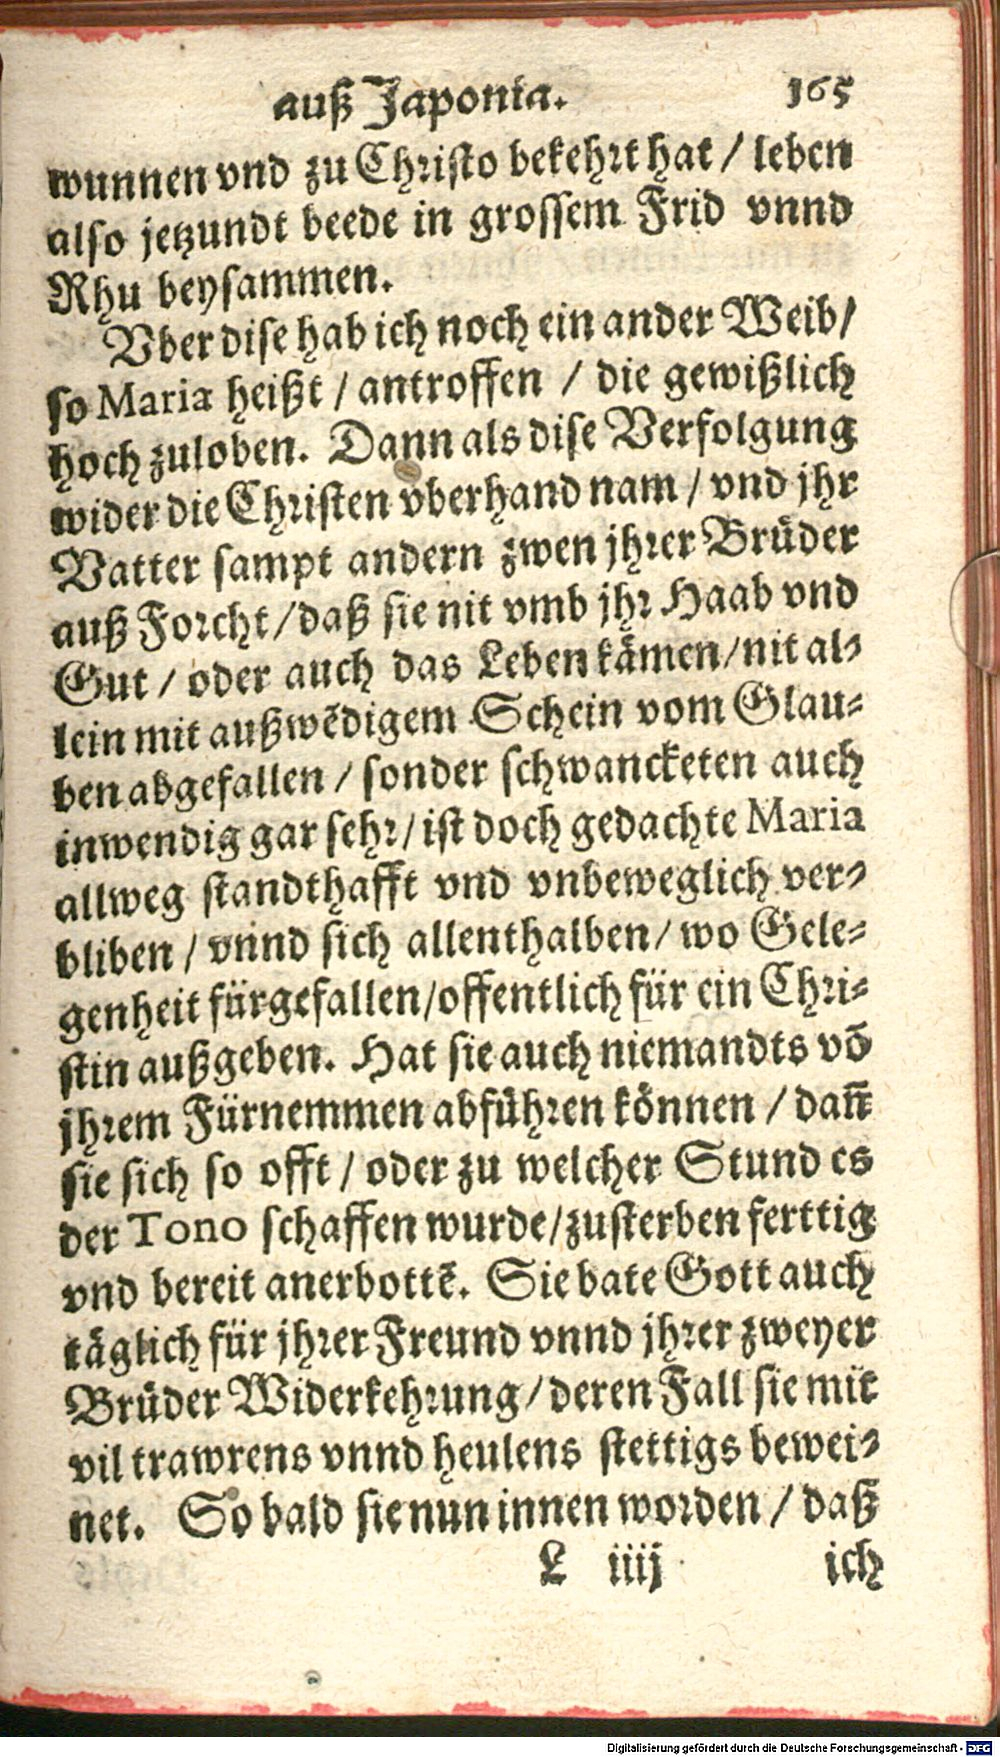 auß Japonia. 165
wunnen vnd zu Christo bekehrt hat / leben
also jetzundt beede in grossem Frid vnnd
Rhu beysammen.
Vber dise hab ich noch ein ander Weib /
so Maria heißt / antroffen / die gewißlich
hoch zuloben. Dann als dise Verfolgung
wider die Christen vberhand nam / vnd jhr
Vatter sampt andern zwen jhrer Brüder
auß Forcht / daß sie nit vmb jhr Haab vnd
Gut / oder auch das Leben kämen / nit al-
lein mit außwẽdigem Schein vom Glau-
ben abgefallen / sonder schwancketen auch
inwendig gar sehr / ist doch gedachte Maria
allweg standthafft vnd vnbeweglich ver-
bliben / vnnd sich allenthalben / wo Gele-
genheit fürgefallen / offentlich für ein Chri-
stin außgeben. Hat sie auch niemandts võ
jhrem Fürnemmen abführen können / dañ
sie sich so offt / oder zu welcher Stund es
der Tono schaffen wurde / zusterben ferttig
vnd bereit anerbottẽ. Sie bate Gott auch
täglich für jhrer Freund vnnd jhrer zweyer
Brüder Widerkehrung / deren Fall sie mit
vil trawrens vnnd heulens stettigs bewei-
net. So bald sie nun innen worden / daß
L iiij ich
Digitalisierung gefördert durch die Deutsche Forschungsgemeinschaft - DFG